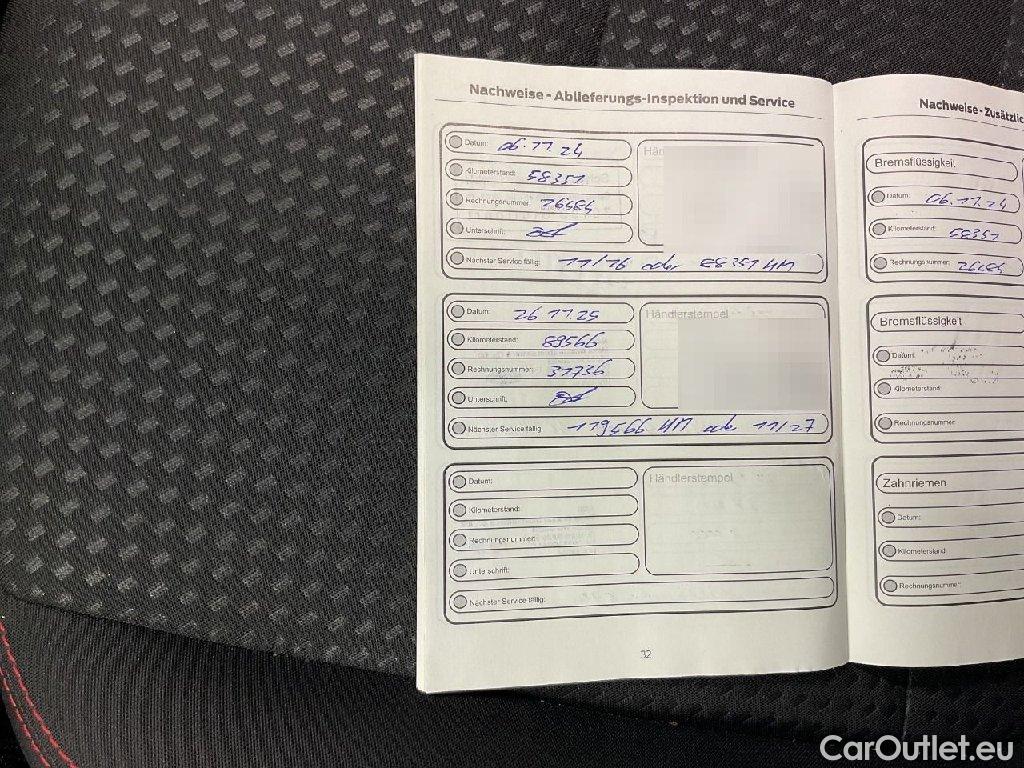 Nachweise - Ablieferungs-Inspektion und Service
Datum: 06.11.24
Händ
Kilometerstand: 58351
Rechnungsnummer:
Unterschrift:
Nächster Service fällig: 11/26 oder 88351 KM
Datum: 26.11.25
Händlerstempel
Kilometerstand: 89566
Rechnungsnummer: 31736
Unterschrift:
Nächster Service fällig: 119566 KM oder 11/27
Datum:
Händlerstempel
Kilometerstand:
Rechnungsnummer:
Unterschrift:
Nächster Service fällig:
32
Nachweise - Zusätzlic
Bremsflüssigkeit
Datum: 06.11.24
Kilometerstand: 58351
Rechnungsnummer:
Bremsflüssigkeit
Datum:
Kilometerstand:
Rechnungsnummer:
Zahnriemen
Datum:
Kilometerstand:
Rechnungsnummer:
CarOutlet.eu